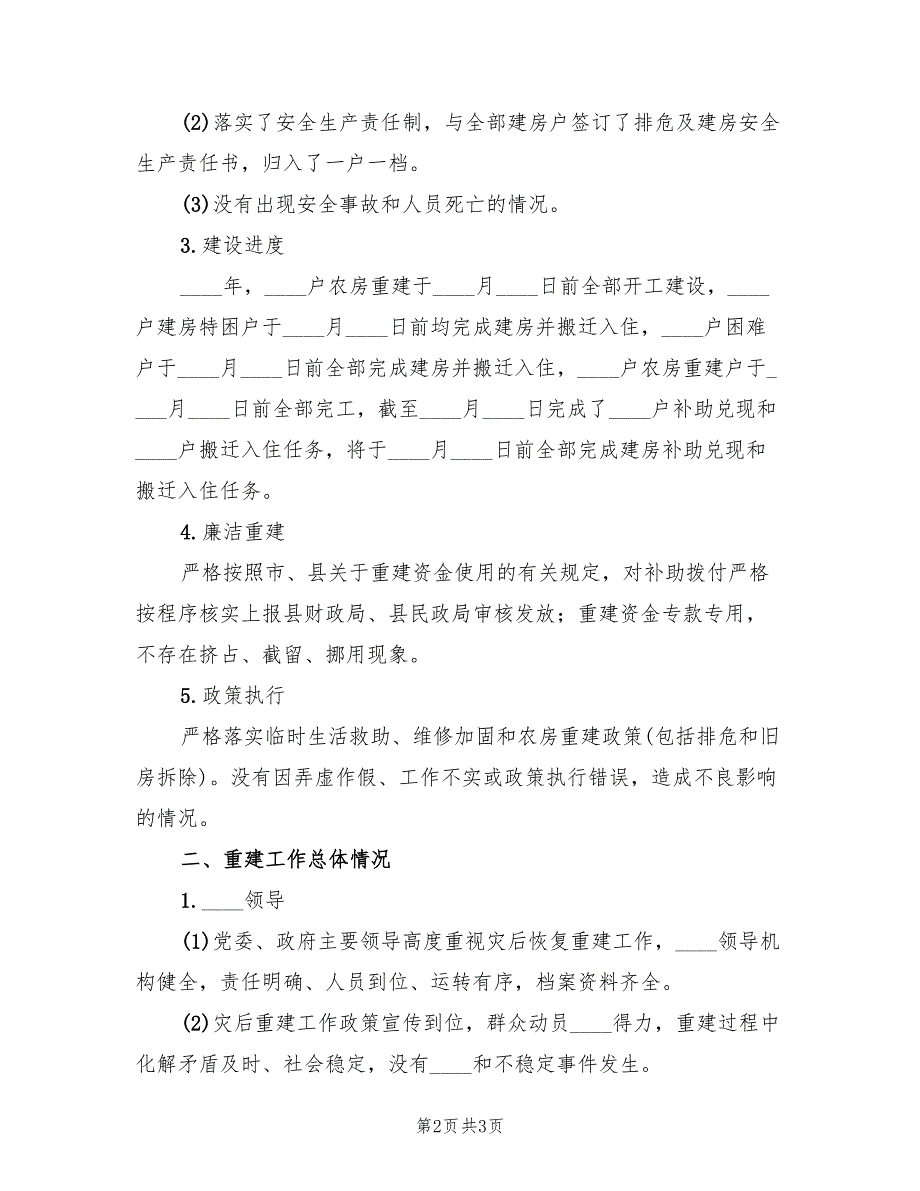 (2)落实了安全生产责任制，与全部建房户签订了排危及建房安全
生产责任书，归入了一户一档。
(3)没有出现安全事故和人员死亡的情况。
3.建设进度
____年，____户农房重建于____月____日前全部开工建设，____
户建房特困户于____月____日前均完成建房并搬迁入住，____户困难
户于____月____日前全部完成建房并搬迁入住，____户农房重建户于_
___月____日前全部完工，截至____月____日完成了____户补助兑现和
____户搬迁入住任务，将于____月____日前全部完成建房补助兑现和
搬迁入住任务。
4.廉洁重建
严格按照市、县关于重建资金使用的有关规定，对补助拨付严格
按程序核实上报县财政局、县民政局审核发放；重建资金专款专用，
不存在挤占、截留、挪用现象。
5.政策执行
严格落实临时生活救助、维修加固和农房重建政策(包括排危和旧
房拆除)。没有因弄虚作假、工作不实或政策执行错误，造成不良影响
的情况。
二、重建工作总体情况
1.____领导
(1)党委、政府主要领导高度重视灾后恢复重建工作，____领导机
构健全，责任明确、人员到位、运转有序，档案资料齐全。
(2)灾后重建工作政策宣传到位，群众动员____得力，重建过程中
化解矛盾及时、社会稳定，没有____和不稳定事件发生。
第2页共3页